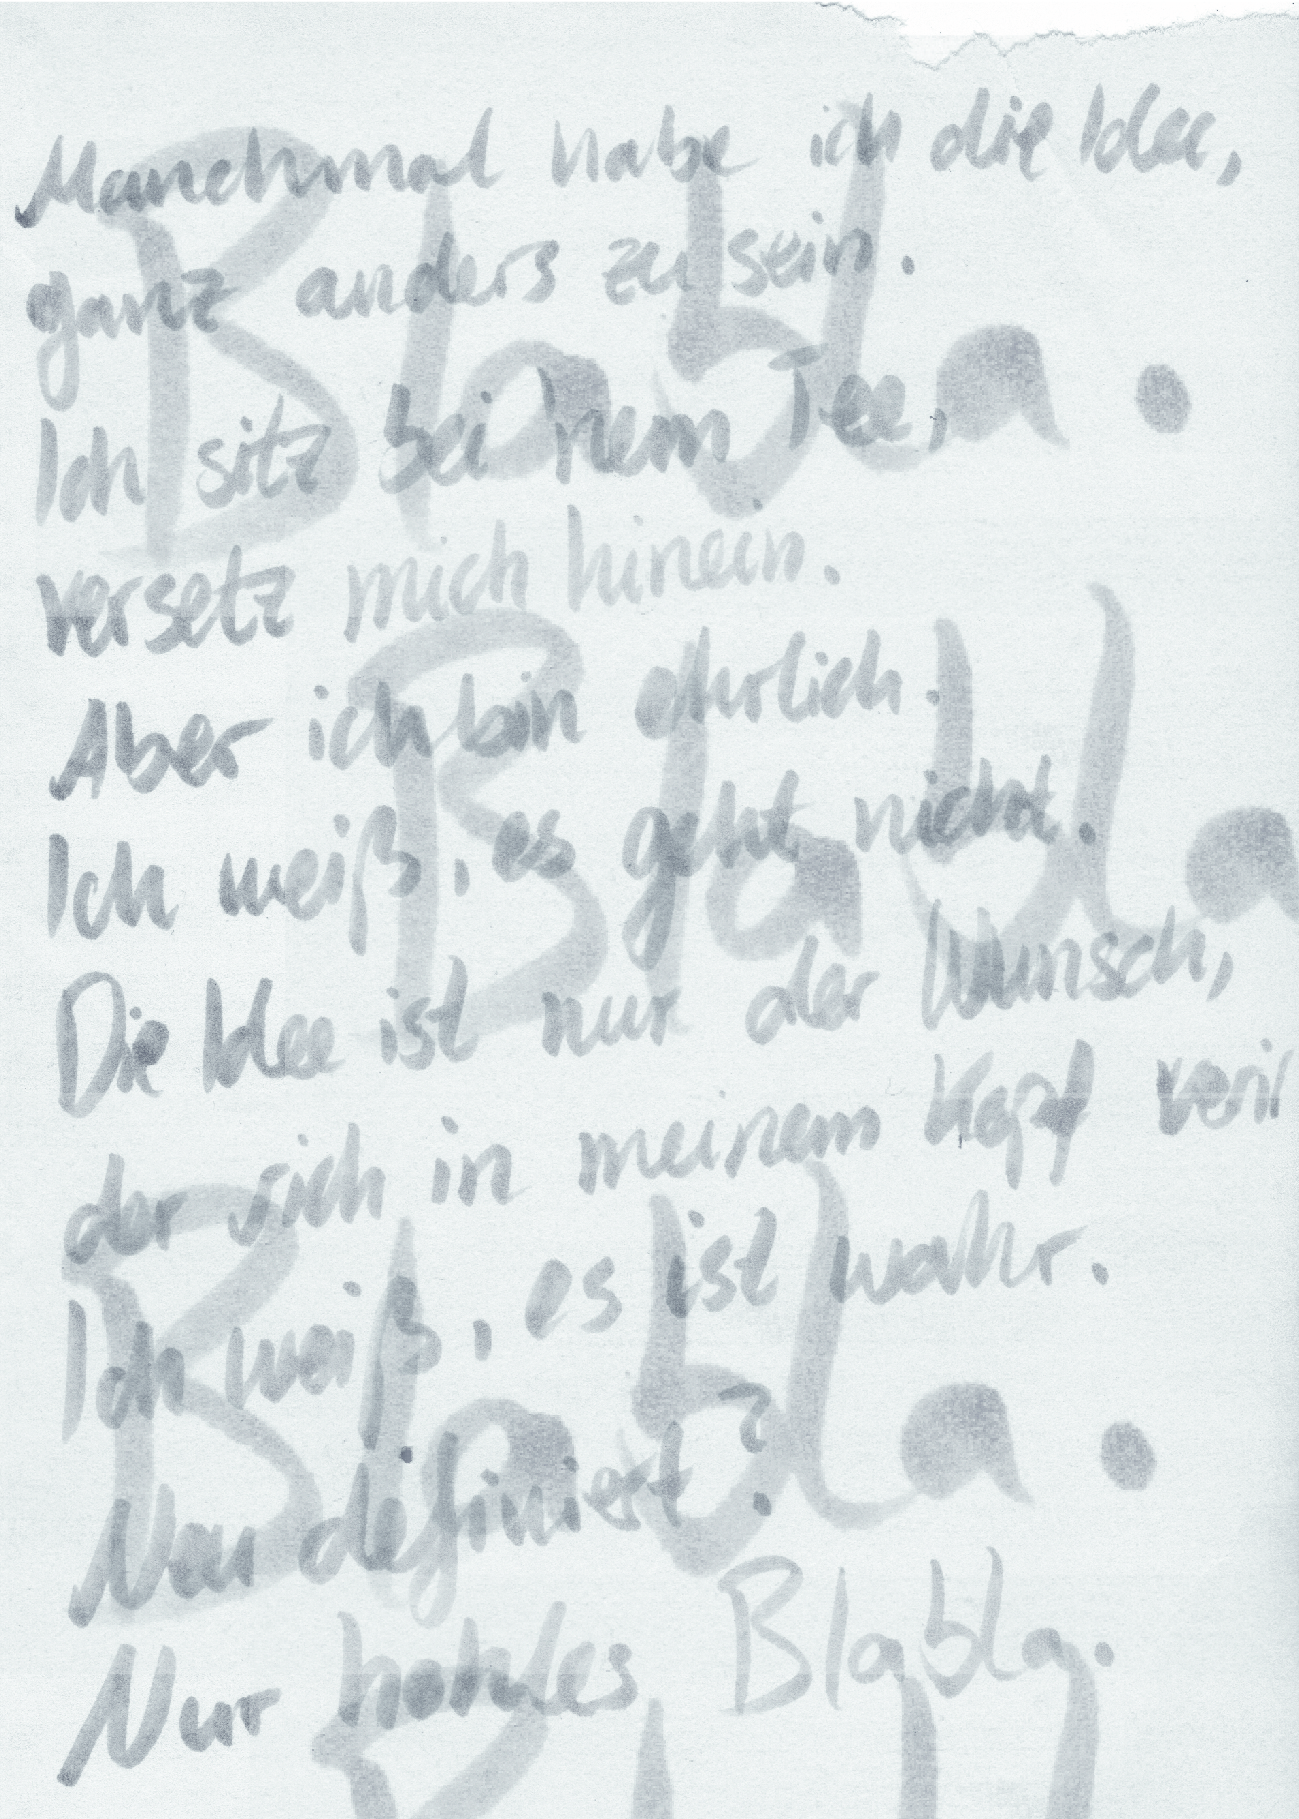 Manchmal habe ich die Idee,
ganz anders zu sein.
Blabla.
Ich sitz bei nem Tee,
versetz mich hinein.
Aber ich bin ehrlich.
Blabla
Ich weiß, es geht nicht.
Die Idee ist nur der Wunsch,
der sich in meinem Kopf verir
Ich weiß, es ist wahr.
Blabla.
Neu definiert?
Nur hohles Blabla.